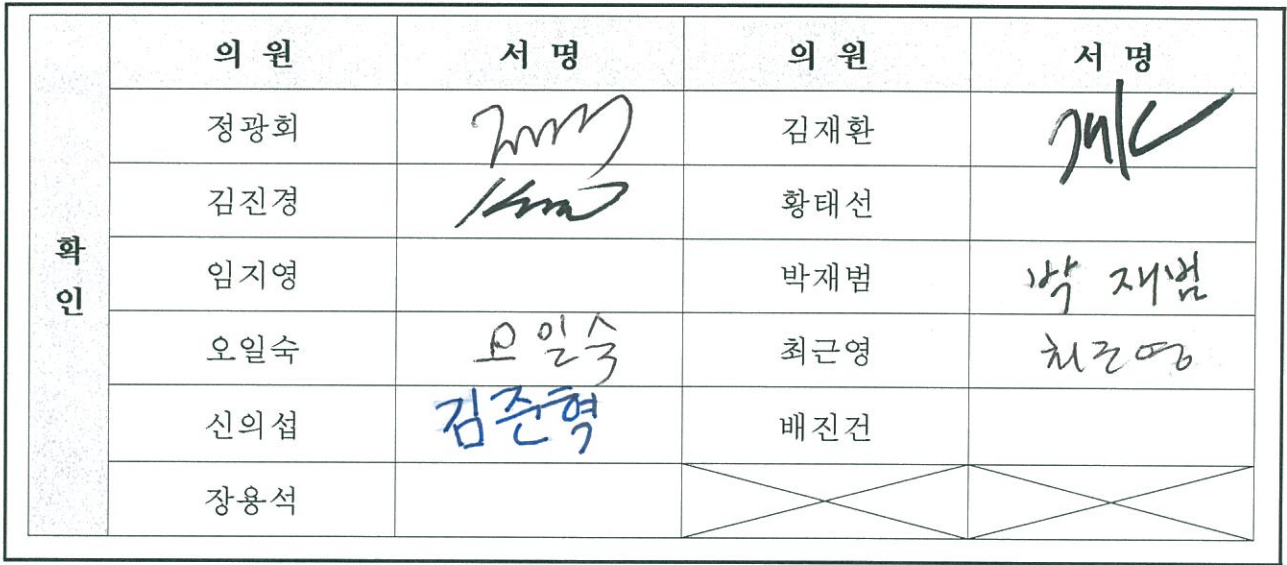 의 원 서 명 의 원 서 명
정광회 김재환
김진경 황태선
확
인
임지영 박재범 박 재범
오일숙 오일숙 최근영 최근영
신의섭 김준혁 배진건
장용석